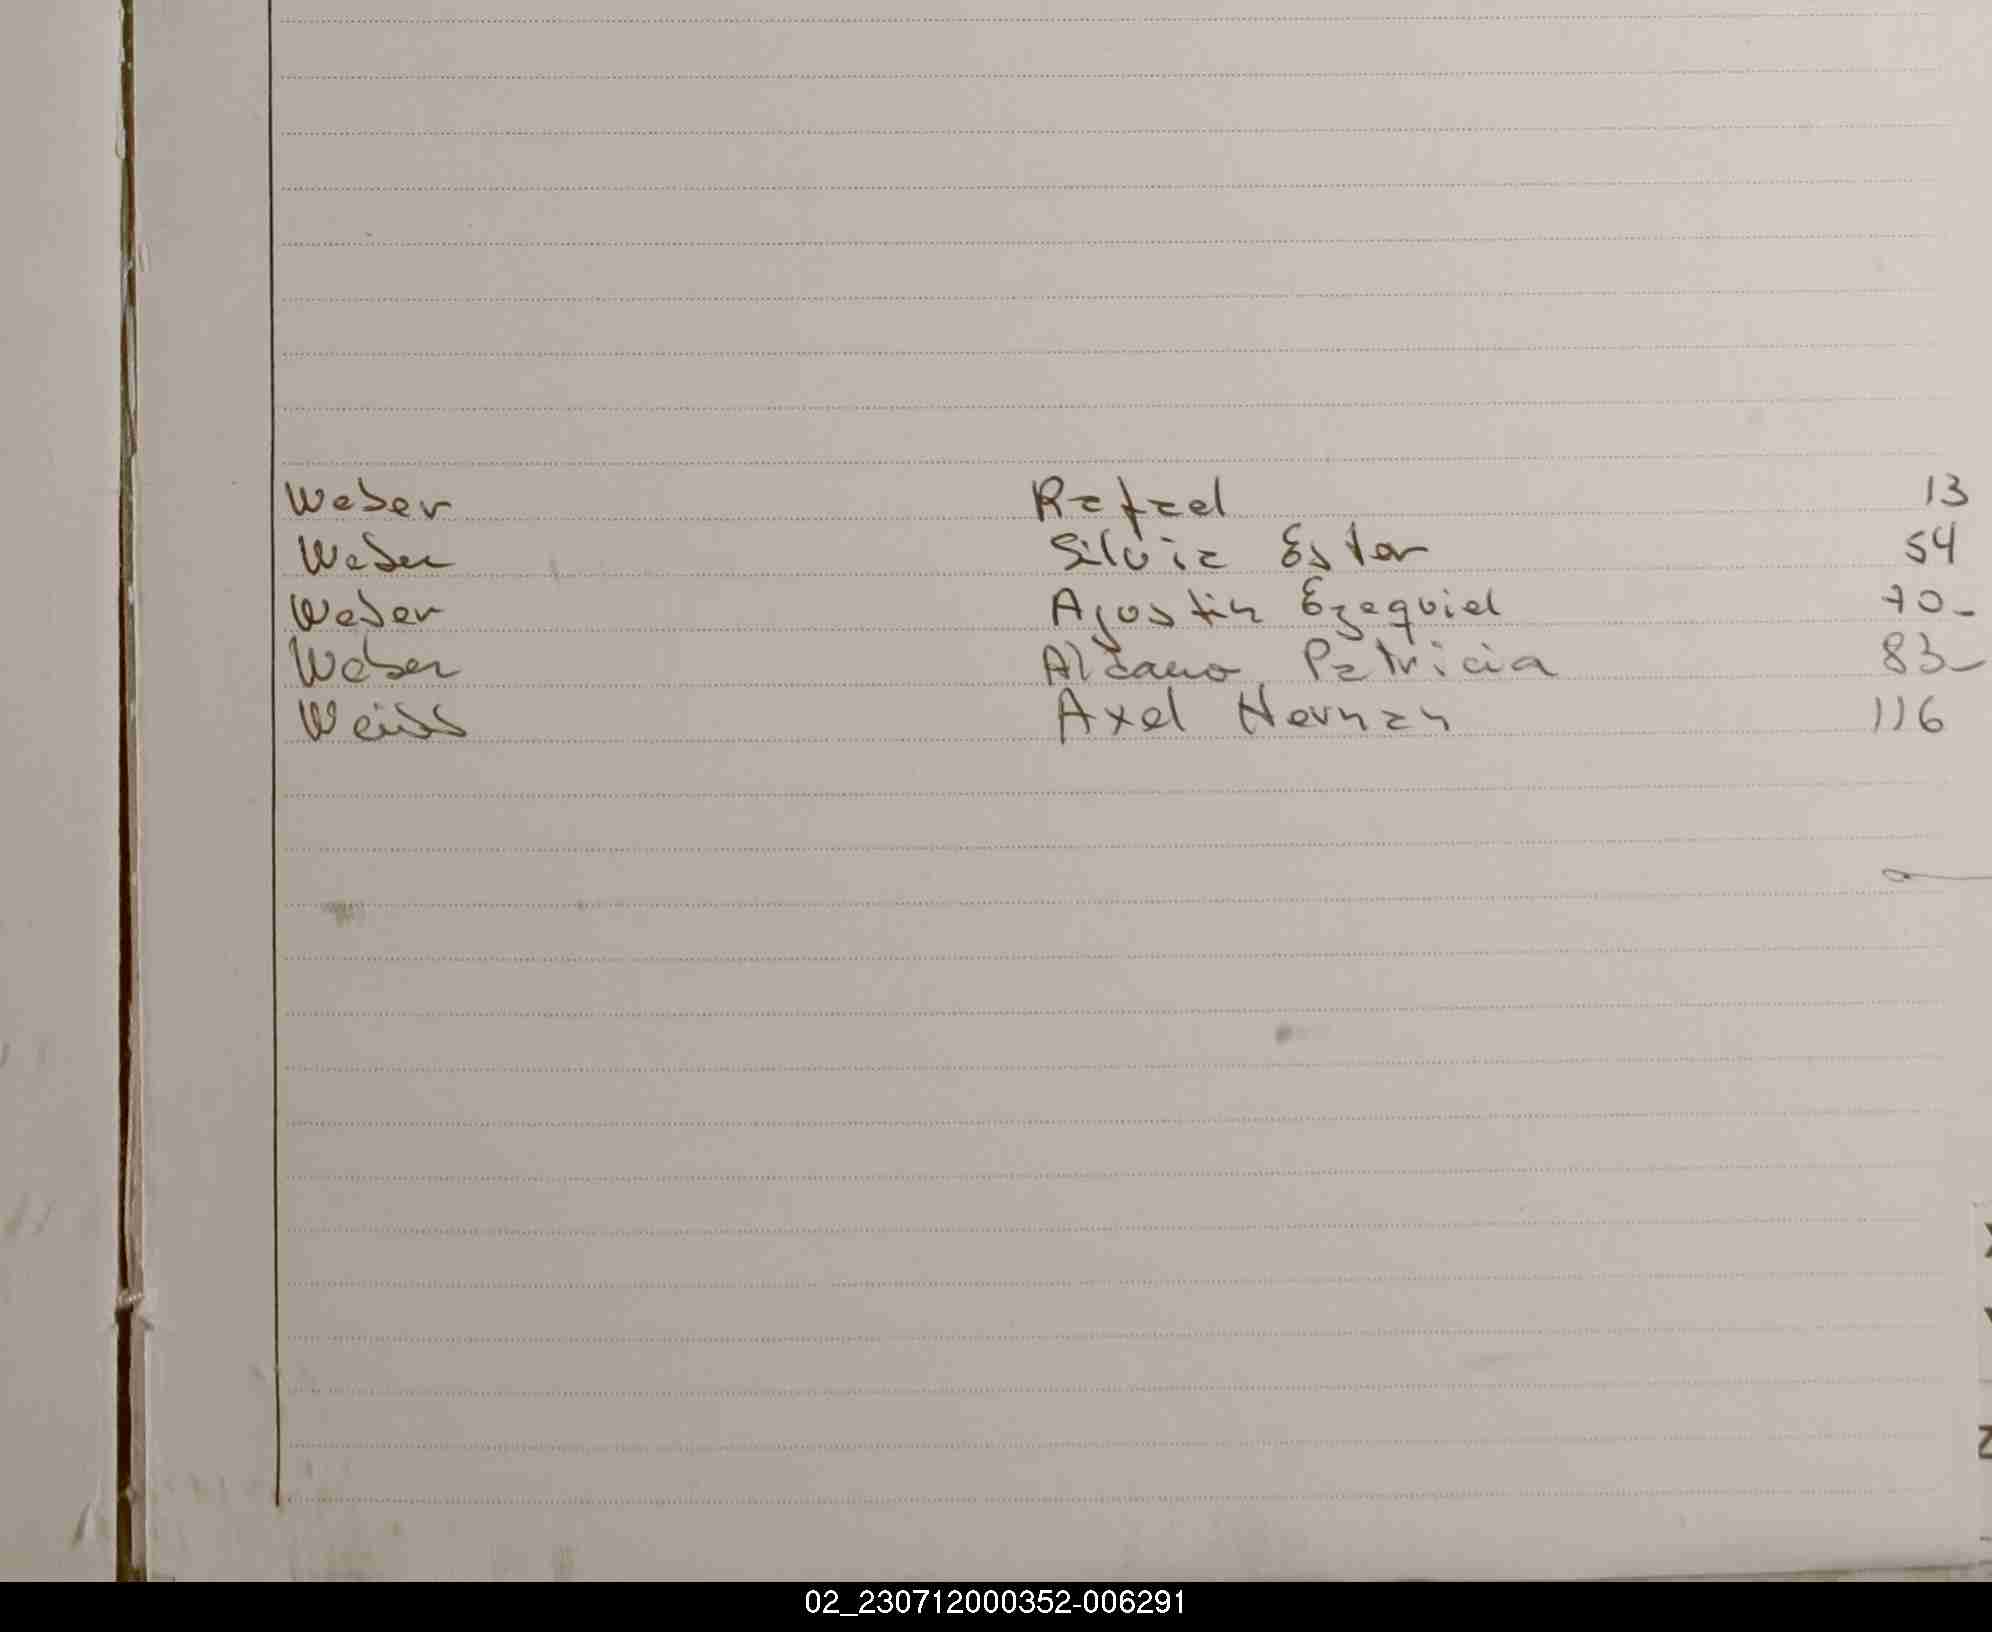 Weber Rafael 13
Weber Silvia Ester 54
Weber Agustin Ezequiel 70-
Weber Patricia 83-
Weiss Axel Hernan 116
Z
02_230712000352-006291